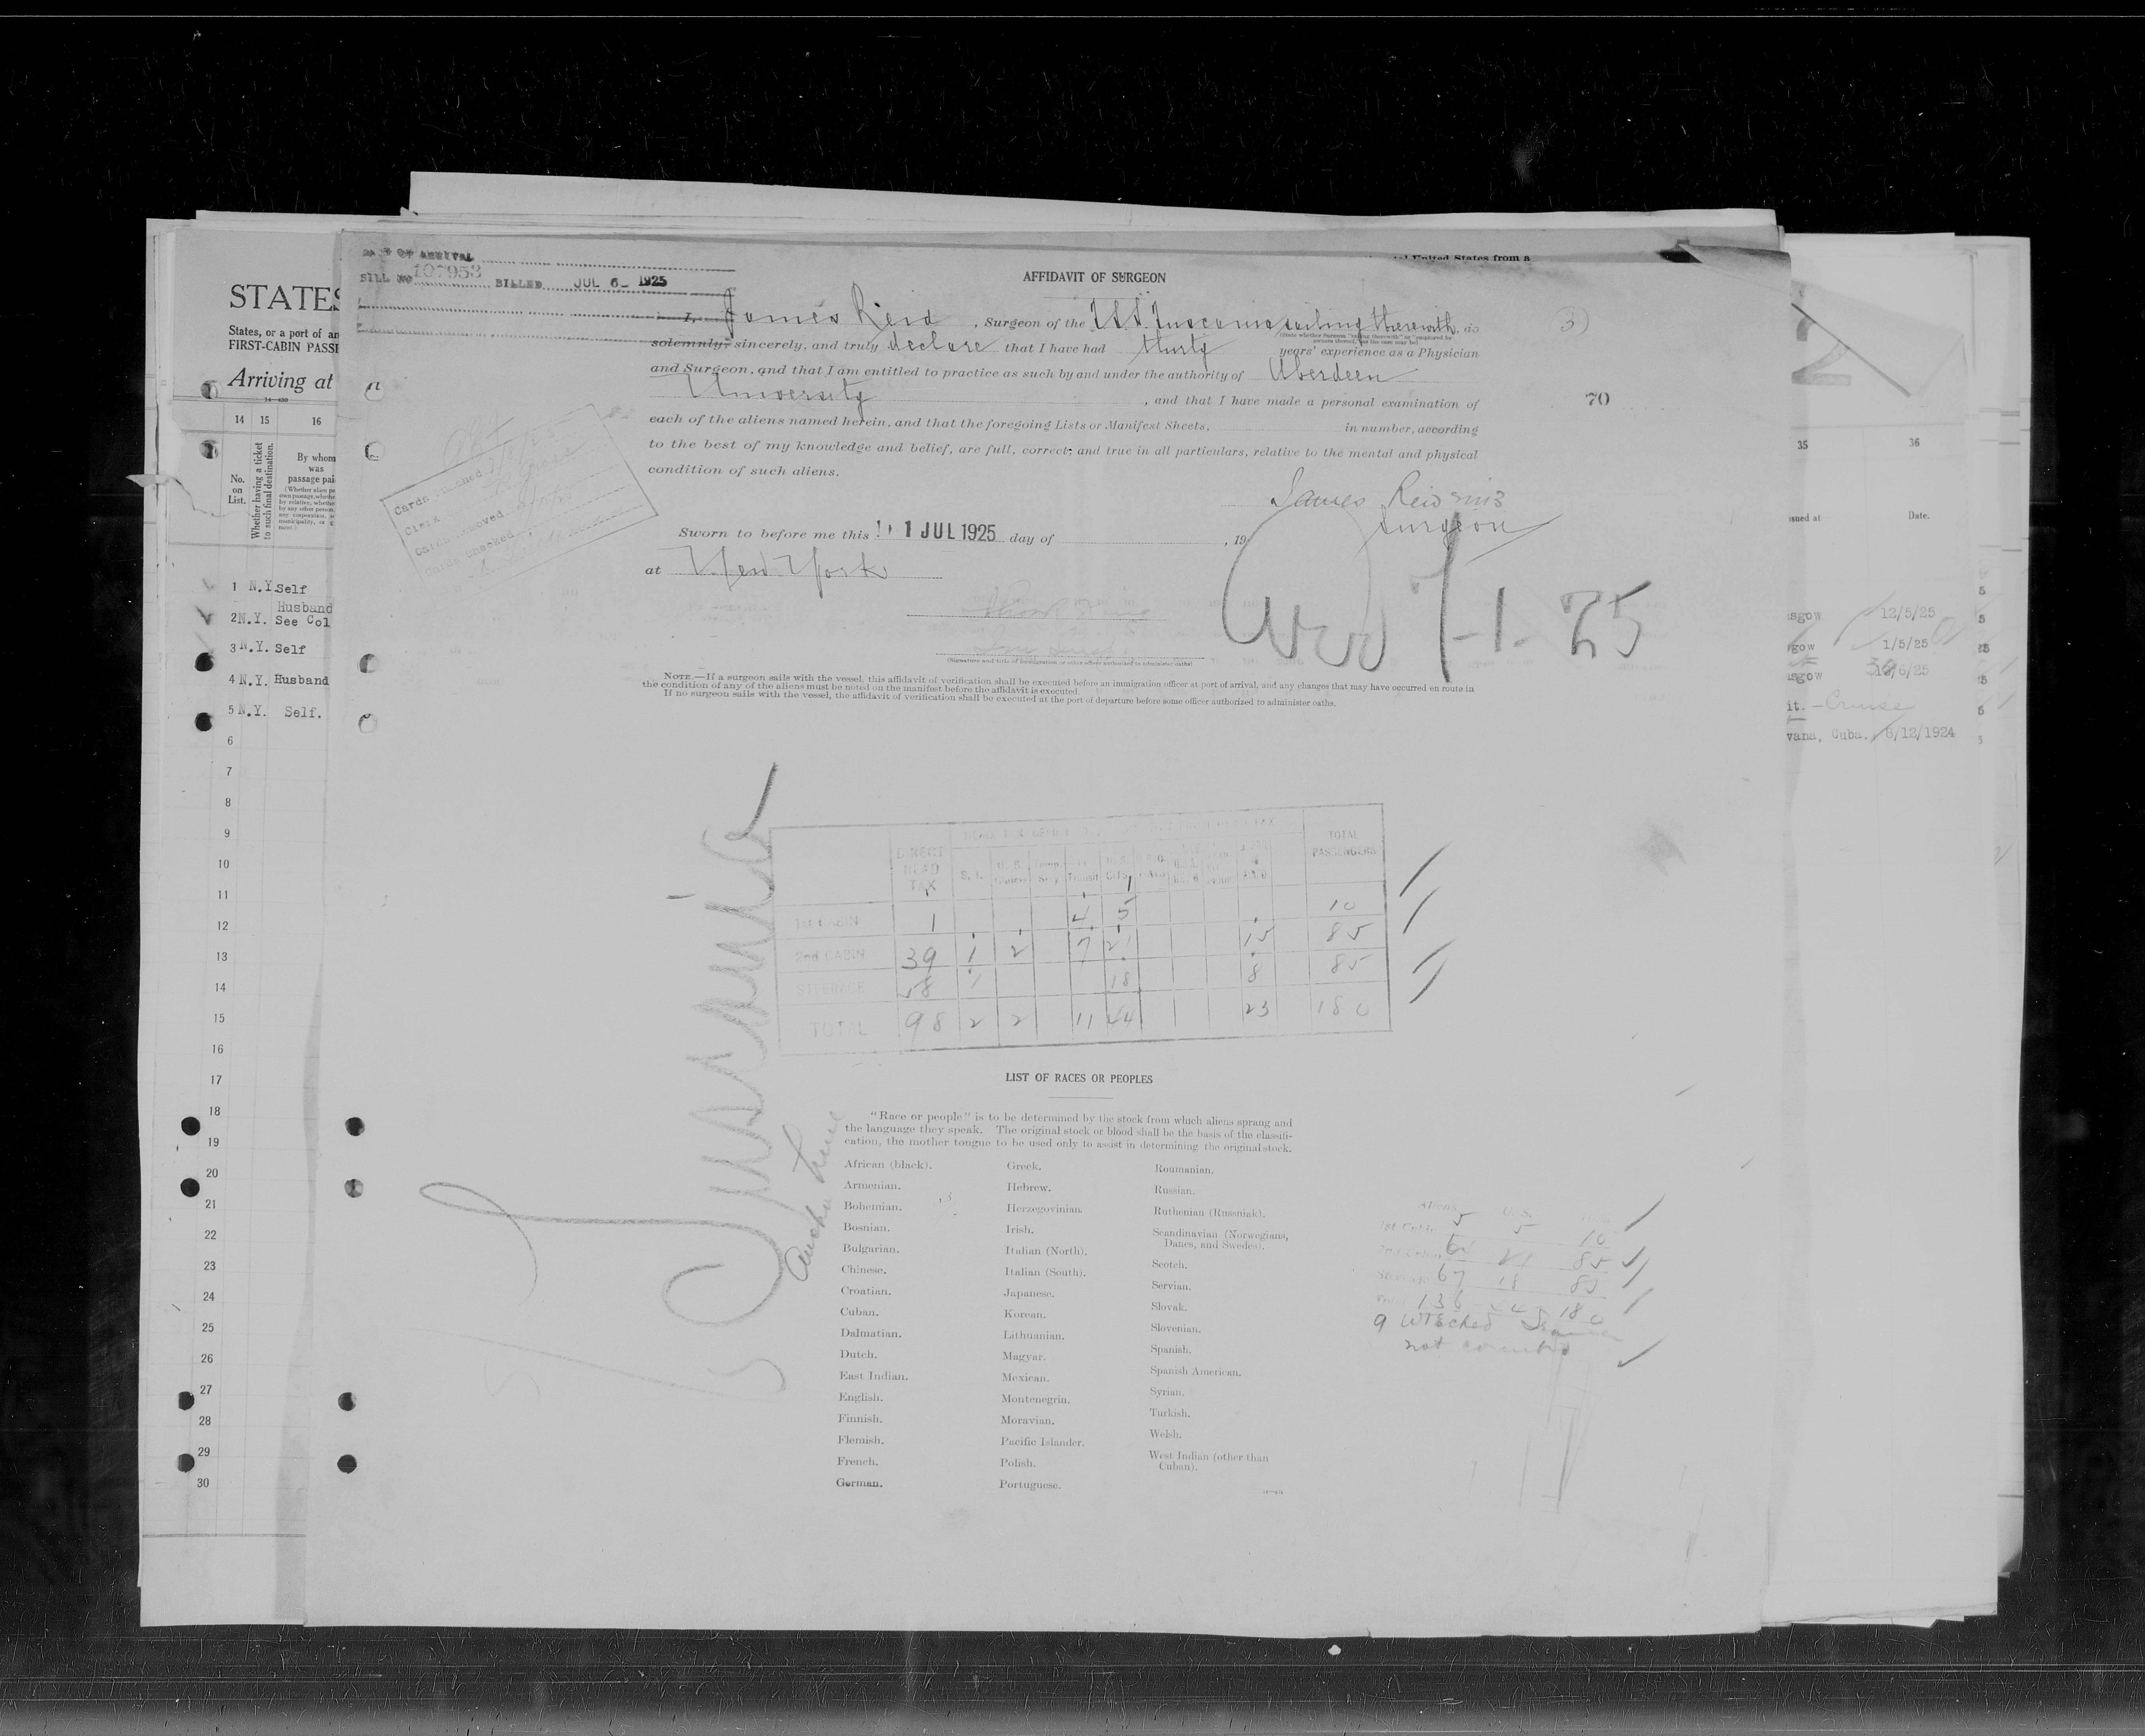 DATE OF ARRIVAL
BILL NO 107953 BILLED JUL 6- 1925
United States from a
AFFIDAVIT OF SURGEON
I, James Reid, Surgeon of the T.S.S. Tuscania sailing therewith, do
solemnly, sincerely, and truly declare that I have had thirty years' experience as a Physician
and Surgeon, and that I am entitled to practice as such by and under the authority of Aberdeen
University, and that I have made a personal examination of
each of the aliens named herein, and that the foregoing Lists or Manifest Sheets, in number, according
to the best of my knowledge and belief, are full, correct, and true in all particulars, relative to the mental and physical
condition of such aliens.
James Reid
Surgeon
Sworn to before me this 1 JUL 1925 day of , 19
at New York
(Signature and title of immigration or other officer authorized to administer oaths)
7-1-25
3
70
NOTE.—If a surgeon sails with the vessel, this affidavit of verification shall be executed before an immigration officer at port of arrival, and any changes that may have occurred en route in
the condition of any of the aliens must be noted on the manifest before the affidavit is executed.
If no surgeon sails with the vessel, the affidavit of verification shall be executed at the port of departure before some officer authorized to administer oaths.
Tuscania
Anchor Line
DIRECT HEAD TAX S. I. Transit U.S. Cits. TOTAL PASSENGERS
1st CABIN 1 4 5 10
2nd CABIN 39 1 2 7 21 15 85
STEERAGE 58 1 18 8 85
TOTAL 98 2 2 11 44 23 180
LIST OF RACES OR PEOPLES
"Race or people" is to be determined by the stock from which aliens sprang and
the language they speak. The original stock or blood shall be the basis of the classifi-
cation, the mother tongue to be used only to assist in determining the original stock.
African (black).
Armenian.
Bohemian.
Bosnian.
Bulgarian.
Chinese.
Croatian.
Cuban.
Dalmatian.
Dutch.
East Indian.
English.
Finnish.
Flemish.
French.
German.
Greek.
Hebrew.
Herzegovinian.
Irish.
Italian (North).
Italian (South).
Japanese.
Korean.
Lithuanian.
Magyar.
Mexican.
Montenegrin.
Moravian.
Pacific Islander.
Polish.
Portuguese.
Roumanian.
Russian.
Ruthenian (Russniak).
Scandinavian (Norwegians,
Danes, and Swedes).
Scotch.
Servian.
Slovak.
Slovenian.
Spanish.
Spanish American.
Syrian.
Turkish.
Welsh.
West Indian (other than
Cuban).
Aliens U.S.
1st Cabin 5 5 10
2nd Cabin 64 21 85
67 18 85
136 44 180
9 Wrecked Seamen
not counted
STATES
States, or a port of an
FIRST-CABIN PASS
Arriving at
14 15 16
No. on List.
Whether having a ticket to such final destination.
By whom was passage pai
1 N.Y. Self
Husband
2 N.Y. See Col
3 N.Y. Self
4 N.Y. Husband
5 N.Y. Self.
6
7
8
9
10
11
12
13
14
15
16
17
18
19
20
21
22
23
24
25
26
27
28
29
30
2
35 36
sued at Date.
sgow 12/5/25
gow 1/5/25
sgow /6/25
it. - Cruise
vana, Cuba. 6/12/1924